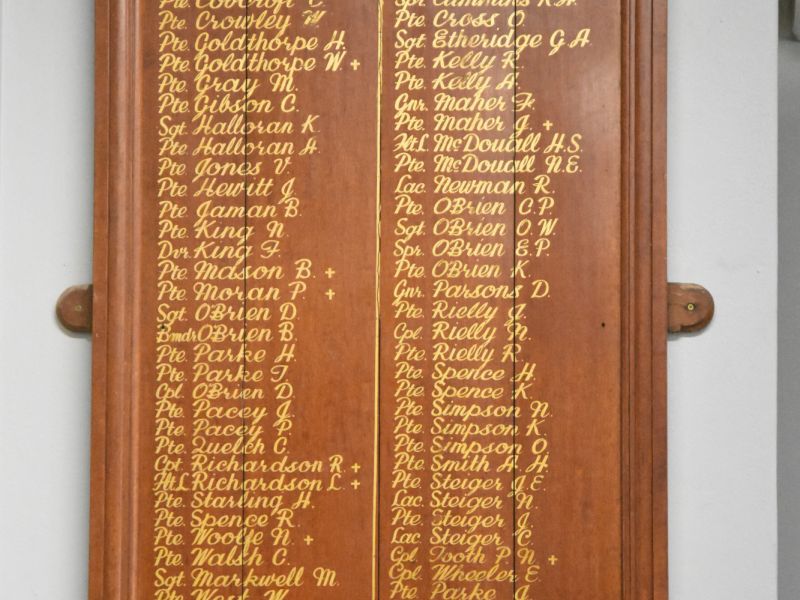 Pte. Crowley M.
Pte. Goldthorpe H.
Pte. Goldthorpe W. +
Pte. Gray M.
Pte. Gibson C.
Sgt. Halloran K.
Pte. Halloran A.
Pte. Jones V.
Pte. Hewitt J.
Pte. Jaman B.
Pte. King N.
Dvr. King F.
Pte. Mason B. +
Pte. Moran P. +
Sgt. OBrien D.
Bmdr OBrien B.
Pte. Parke H.
Pte. Parke T.
Cpl. OBrien D.
Pte. Pacey J.
Pte. Pacey P.
Pte. Quelch C.
Cpt. Richardson R. +
Flt.L Richardson L. +
Pte. Starling H.
Pte. Spence R.
Pte. Woolfe N. +
Pte. Walsh C.
Sgt. Markwell M.
Pte. West W.
Spr. Cummins R.H.
Pte. Cross O.
Sgt. Etheridge G A.
Pte. Kelly R.
Pte. Kelly A.
Gnr. Maher F.
Pte. Maher J. +
Flt.L. McDouall H.S.
Pte. McDouall N.E.
Lac. Newman R.
Pte. OBrien C.P.
Sgt. OBrien O.W.
Spr. OBrien E.P.
Pte. OBrien K.
Gnr. Parsons D.
Pte. Rielly J.
Cpl. Rielly N.
Pte. Rielly R.
Pte. Spence H.
Pte. Spence K.
Pte. Simpson N.
Pte. Simpson K.
Pte. Simpson O.
Pte. Smith H. H.
Pte. Steiger J.E.
Lac. Steiger N.
Pte. Steiger J.
Lac. Steiger C.
Cpl. Tooth P. N. +
Cpl. Wheeler E.
Pte. Parke J.